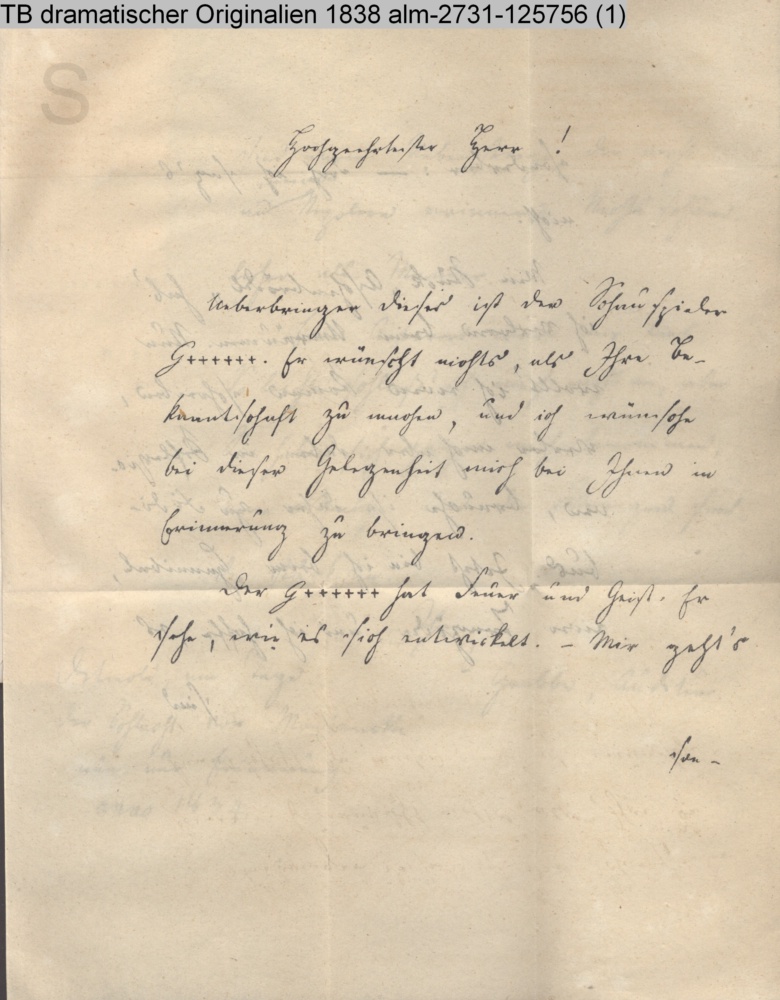 TB dramatischer Originalien 1838 alm-2731-125756 (1)
S
Hochgeehrtester Herr !
Ueberbringer dieses ist der Schauspieler
G++++++. Er wünscht nichts, als Ihre Be-
kanntschaft zu machen, und ich wünsche
bei dieser Gelegenheit mich bei Ihnen in
Erinnerung zu bringen.
Der G++++++ hat Feuer und Geist. Er
sehe, wie es sich entwickelt. – Mir geht's